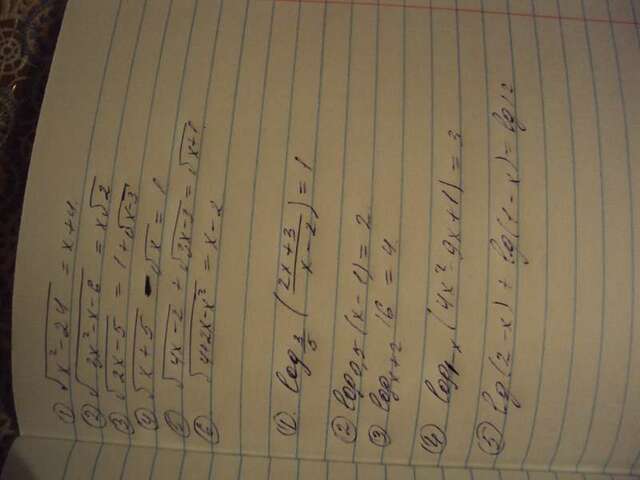 ① √(x²-24) = x+4
② √(3x²-x-6) = x√2
③ √(2x-5) = 1+√(x-3)
④ √(x+5) - √x = 1
⑤ √(4x-2) + √(3x-2) = √(x+1)
⑥ √(4+2x-x²) = x-2
① log_(3/5) ((2x+3)/(x-2)) = 1
② log_(0,5) (x-1) = 2
③ log_(x+2) 16 = 4
④ log_(1-x) (4x²-9x+1) = 3
⑤ lg(2-x) + lg(1-x) = lg12